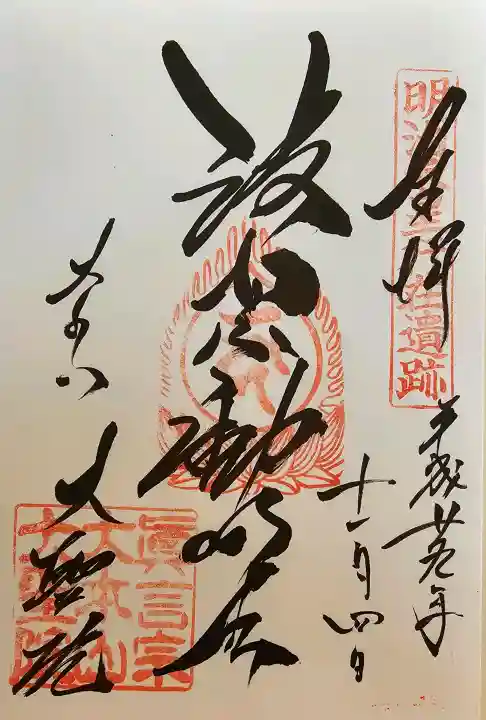 明治天皇行在所遺跡
奉拝
平成廿年
十一月四日
波切不動明王
大聖院
眞言宗
大本山
大聖院